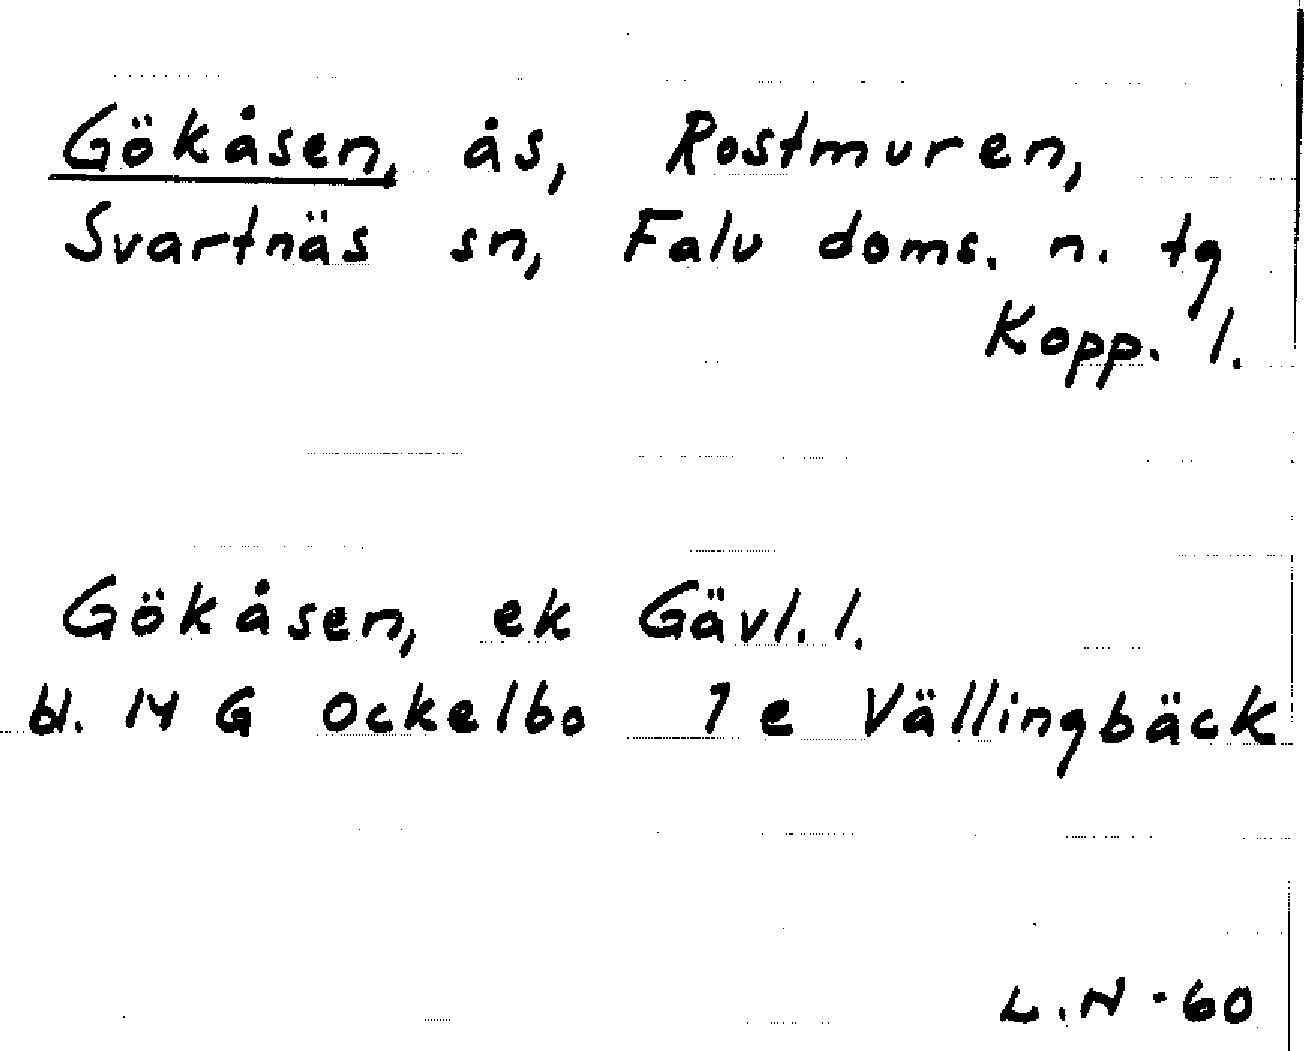 Gökåsen, ås, Rostmuren,
Svartnäs sn, Falu doms. n. tg
Kopp. l.
Gökåsen, ek Gävl. l.
bl. 14 G Ockelbo 7 e Vällingbäck
L.N -60